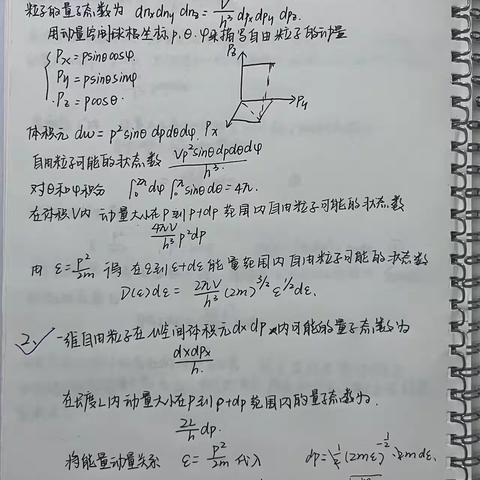 粒子的量子态数为 dnxdnydnz = V/h³ dpxdpydpz.
用动量空间球极坐标p.θ.φ来描写自由粒子的动量
Px = psinθcosφ
Py = psinθsinφ
Pz = pcosθ.
Pz
Py
Px
体积元 dω = p²sinθ dpdθdφ.
自由粒子可能的状态数 Vp²sinθdpdθdφ/h³.
对θ和φ积分 ∫₀^2π dφ ∫₀^π sinθdθ = 4π.
在体积V内 动量大小在P到P+dp范围内自由粒子可能的状态数
4πV/h³ p²dp
由 ε = p²/2m 得 在ε到ε+dε能量范围内自由粒子可能的状态数
D(ε)dε = 2πV/h³ (2m)^3/2 ε^1/2 dε.
2. 一维自由粒子在μ空间体积元dx dpx内可能的量子态数为
dxdpx/h.
在长度L内动量大小在P到P+dp范围内的量子态数为.
2L/h dp.
将能量动量关系 ε = p²/2m 代入